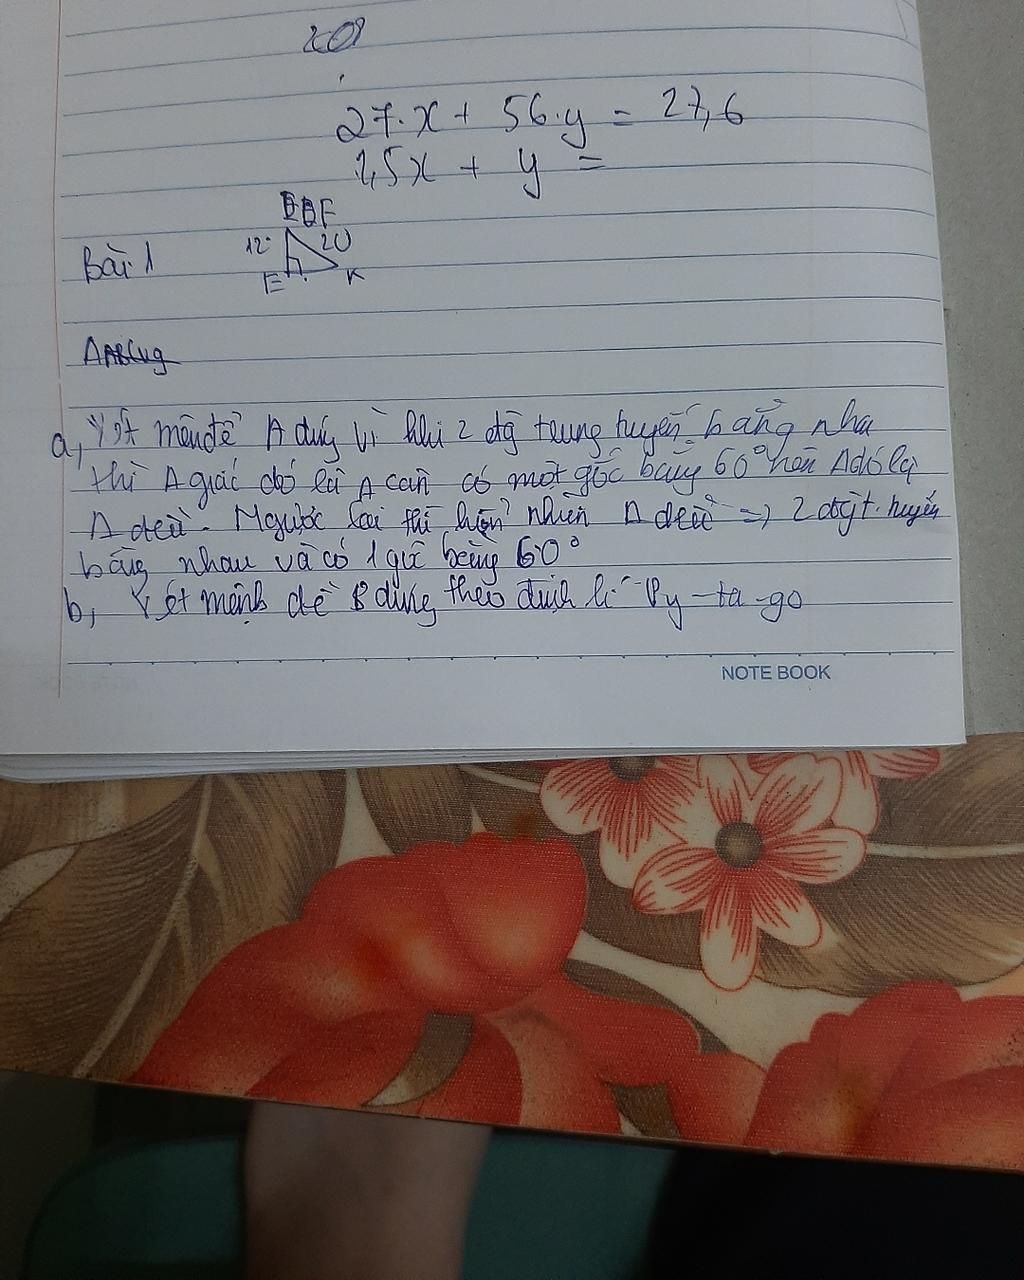 27.x + 56.y = 27,6
1,5x + y =
F
12 20
Bài 1
E K
a, Xét mệnh đề A đúng vì khi 2 đg trung tuyến bằng nha
thì Δ giác đó là Δ cân có một góc bằng 60° nên Δ đó là
Δ đều. Ngược lại thì hiển nhiên Δ đều => 2 đg t. tuyến
bằng nhau và có 1 góc bằng 60°
b, Xét mệnh đề B đúng theo định lí Py-ta-go
NOTE BOOK